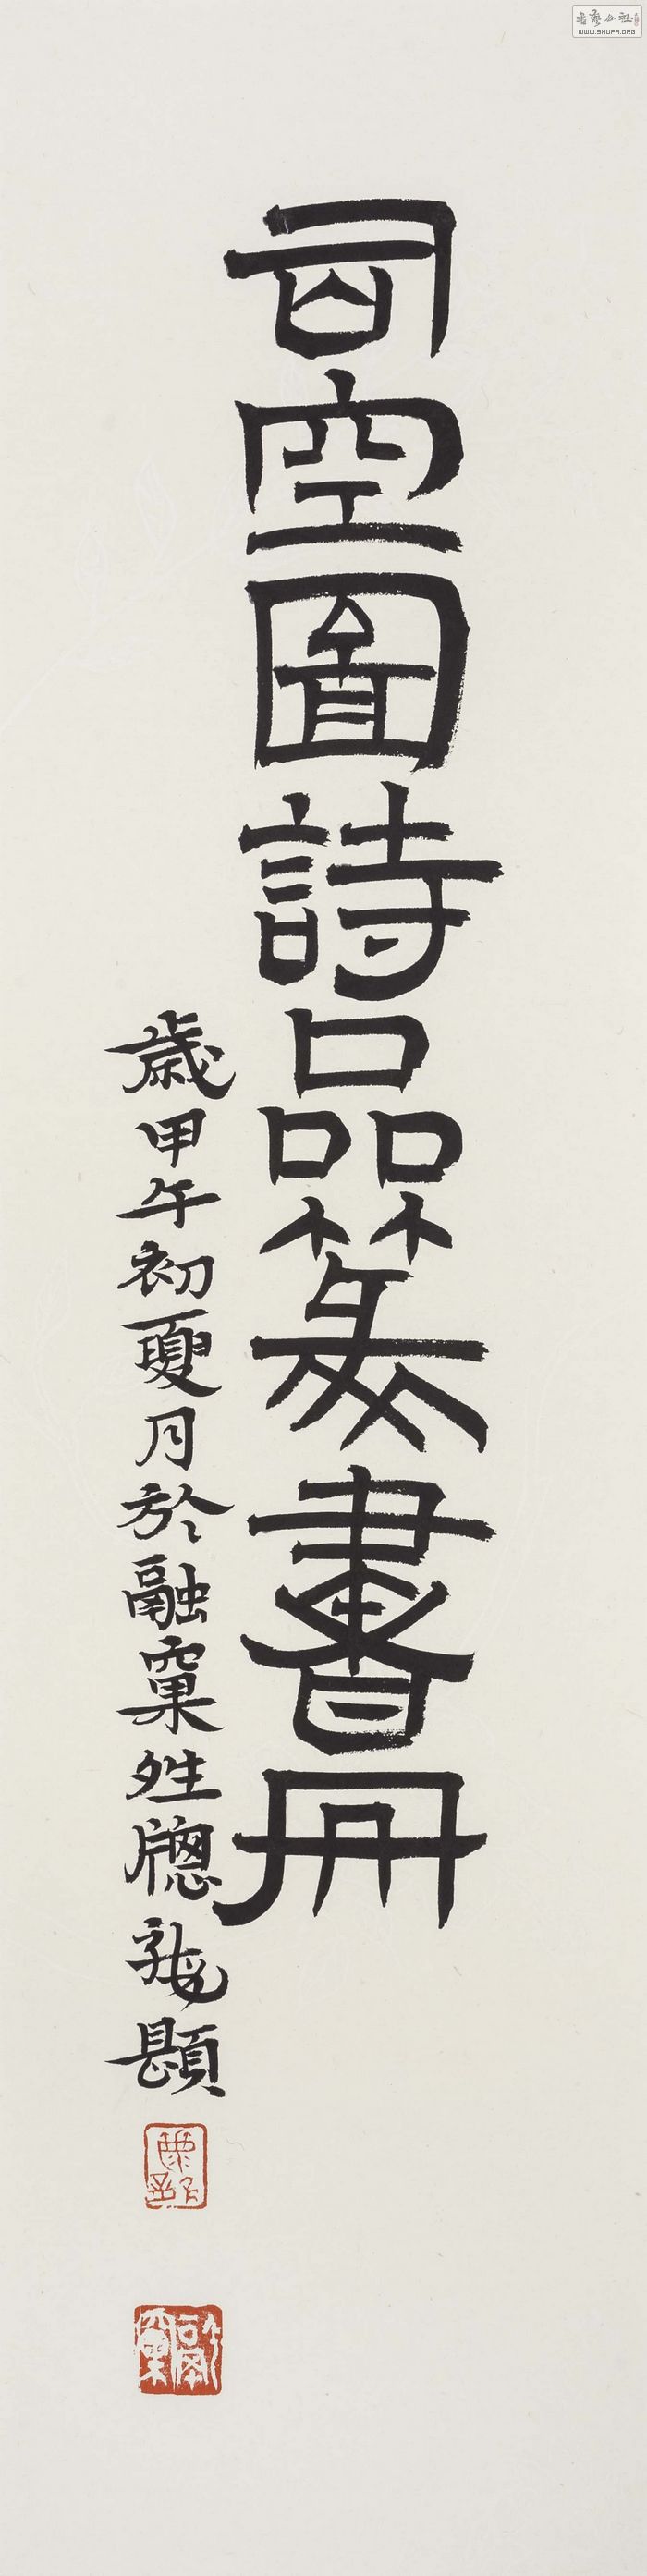 司空圖詩品篆書冊
歲甲午初夏月於融窠姓牕龍題
WWW.SHUFA.ORG